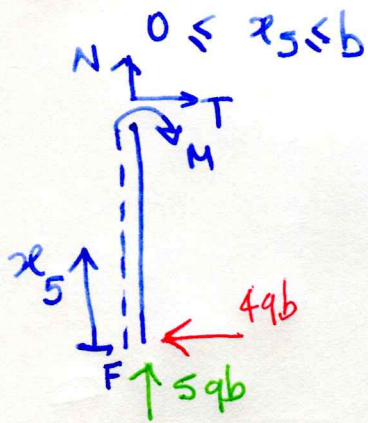 0 ≤ x₅ ≤ b
N
T
M
x₅
4qb
F
5qb